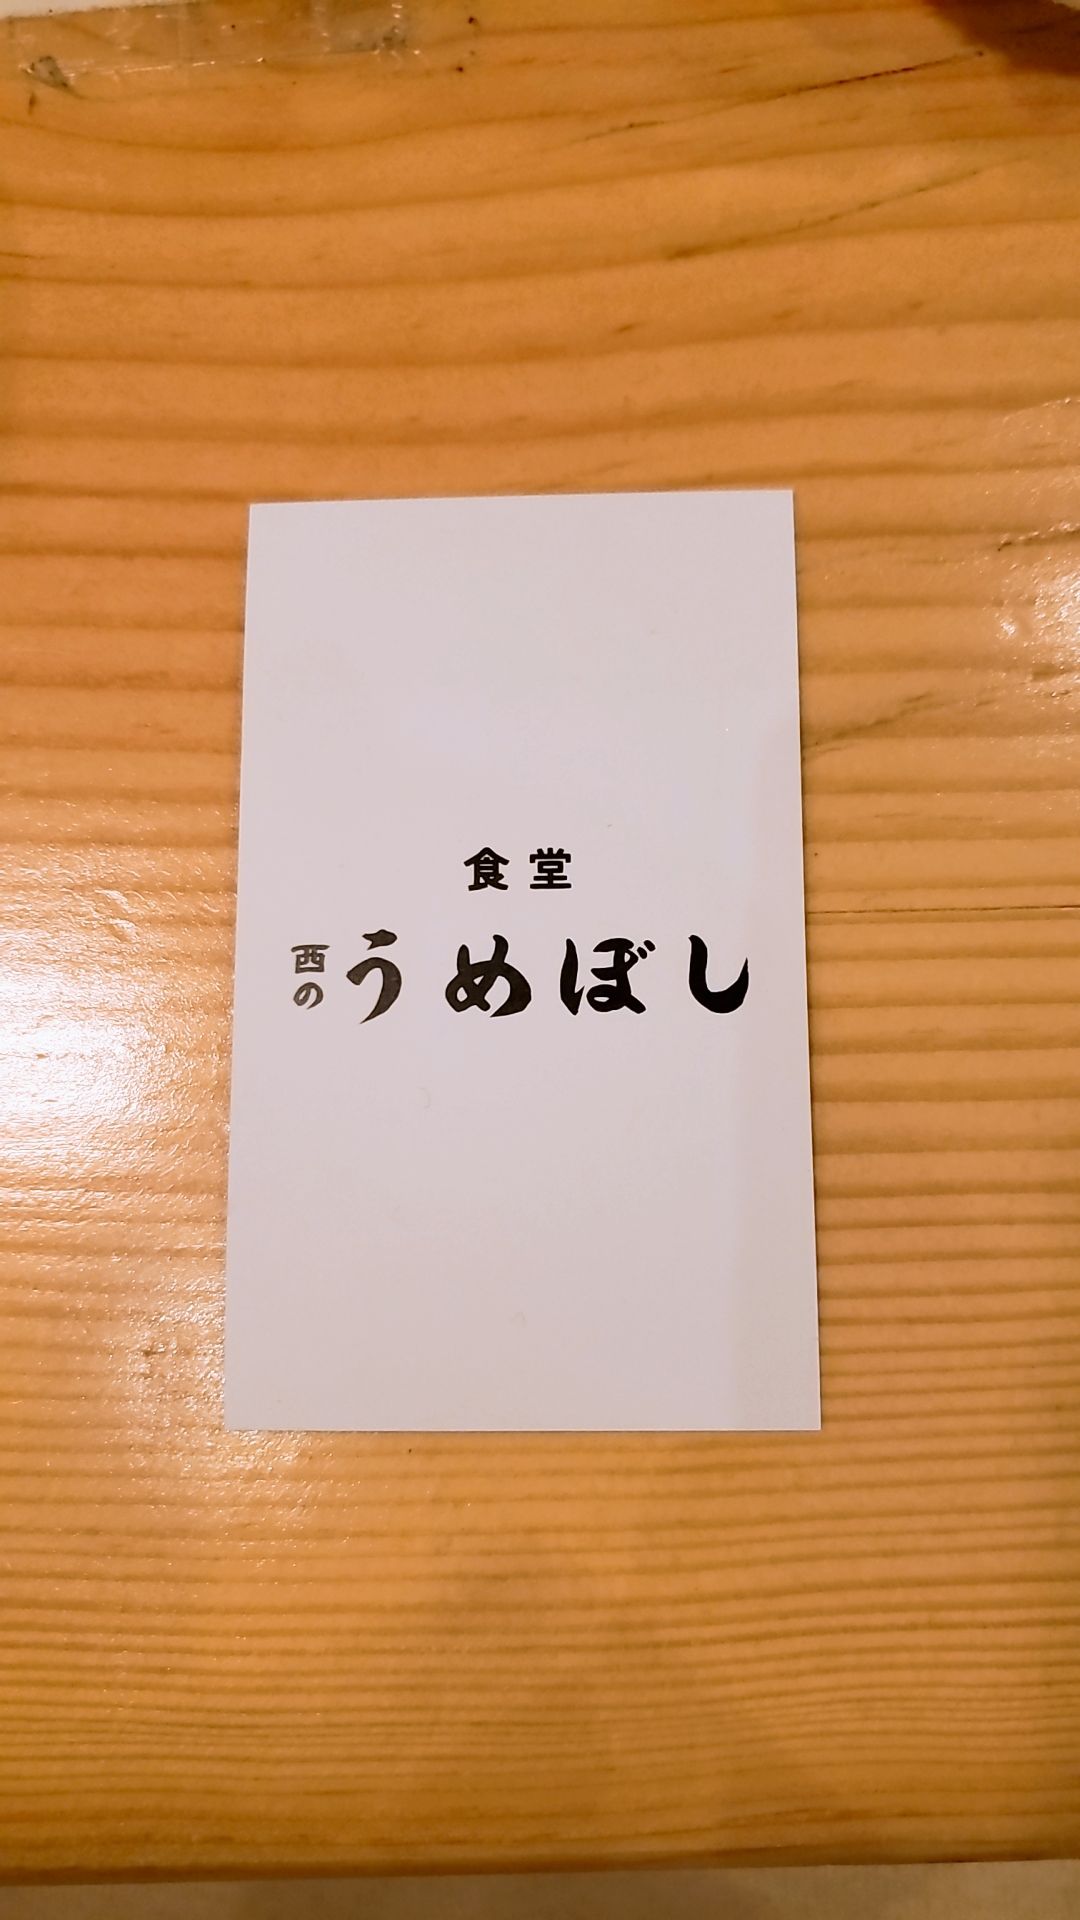 食堂
西の うめぼし